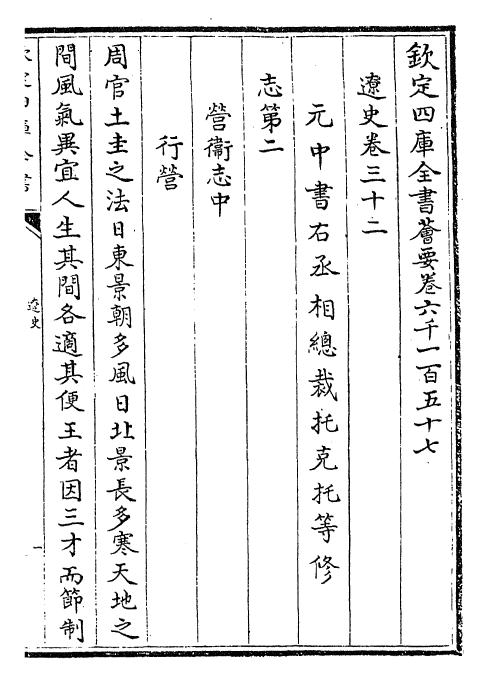 欽定四庫全書薈要卷六千一百五十七
遼史卷三十二
元中書右丞相總裁托克托等修
志第二
營衛志中
行營
周官土圭之法日東景朝多風日北景長多寒天地之
間風氣異宜人生其間各適其便王者因三才而節制
遼史
一